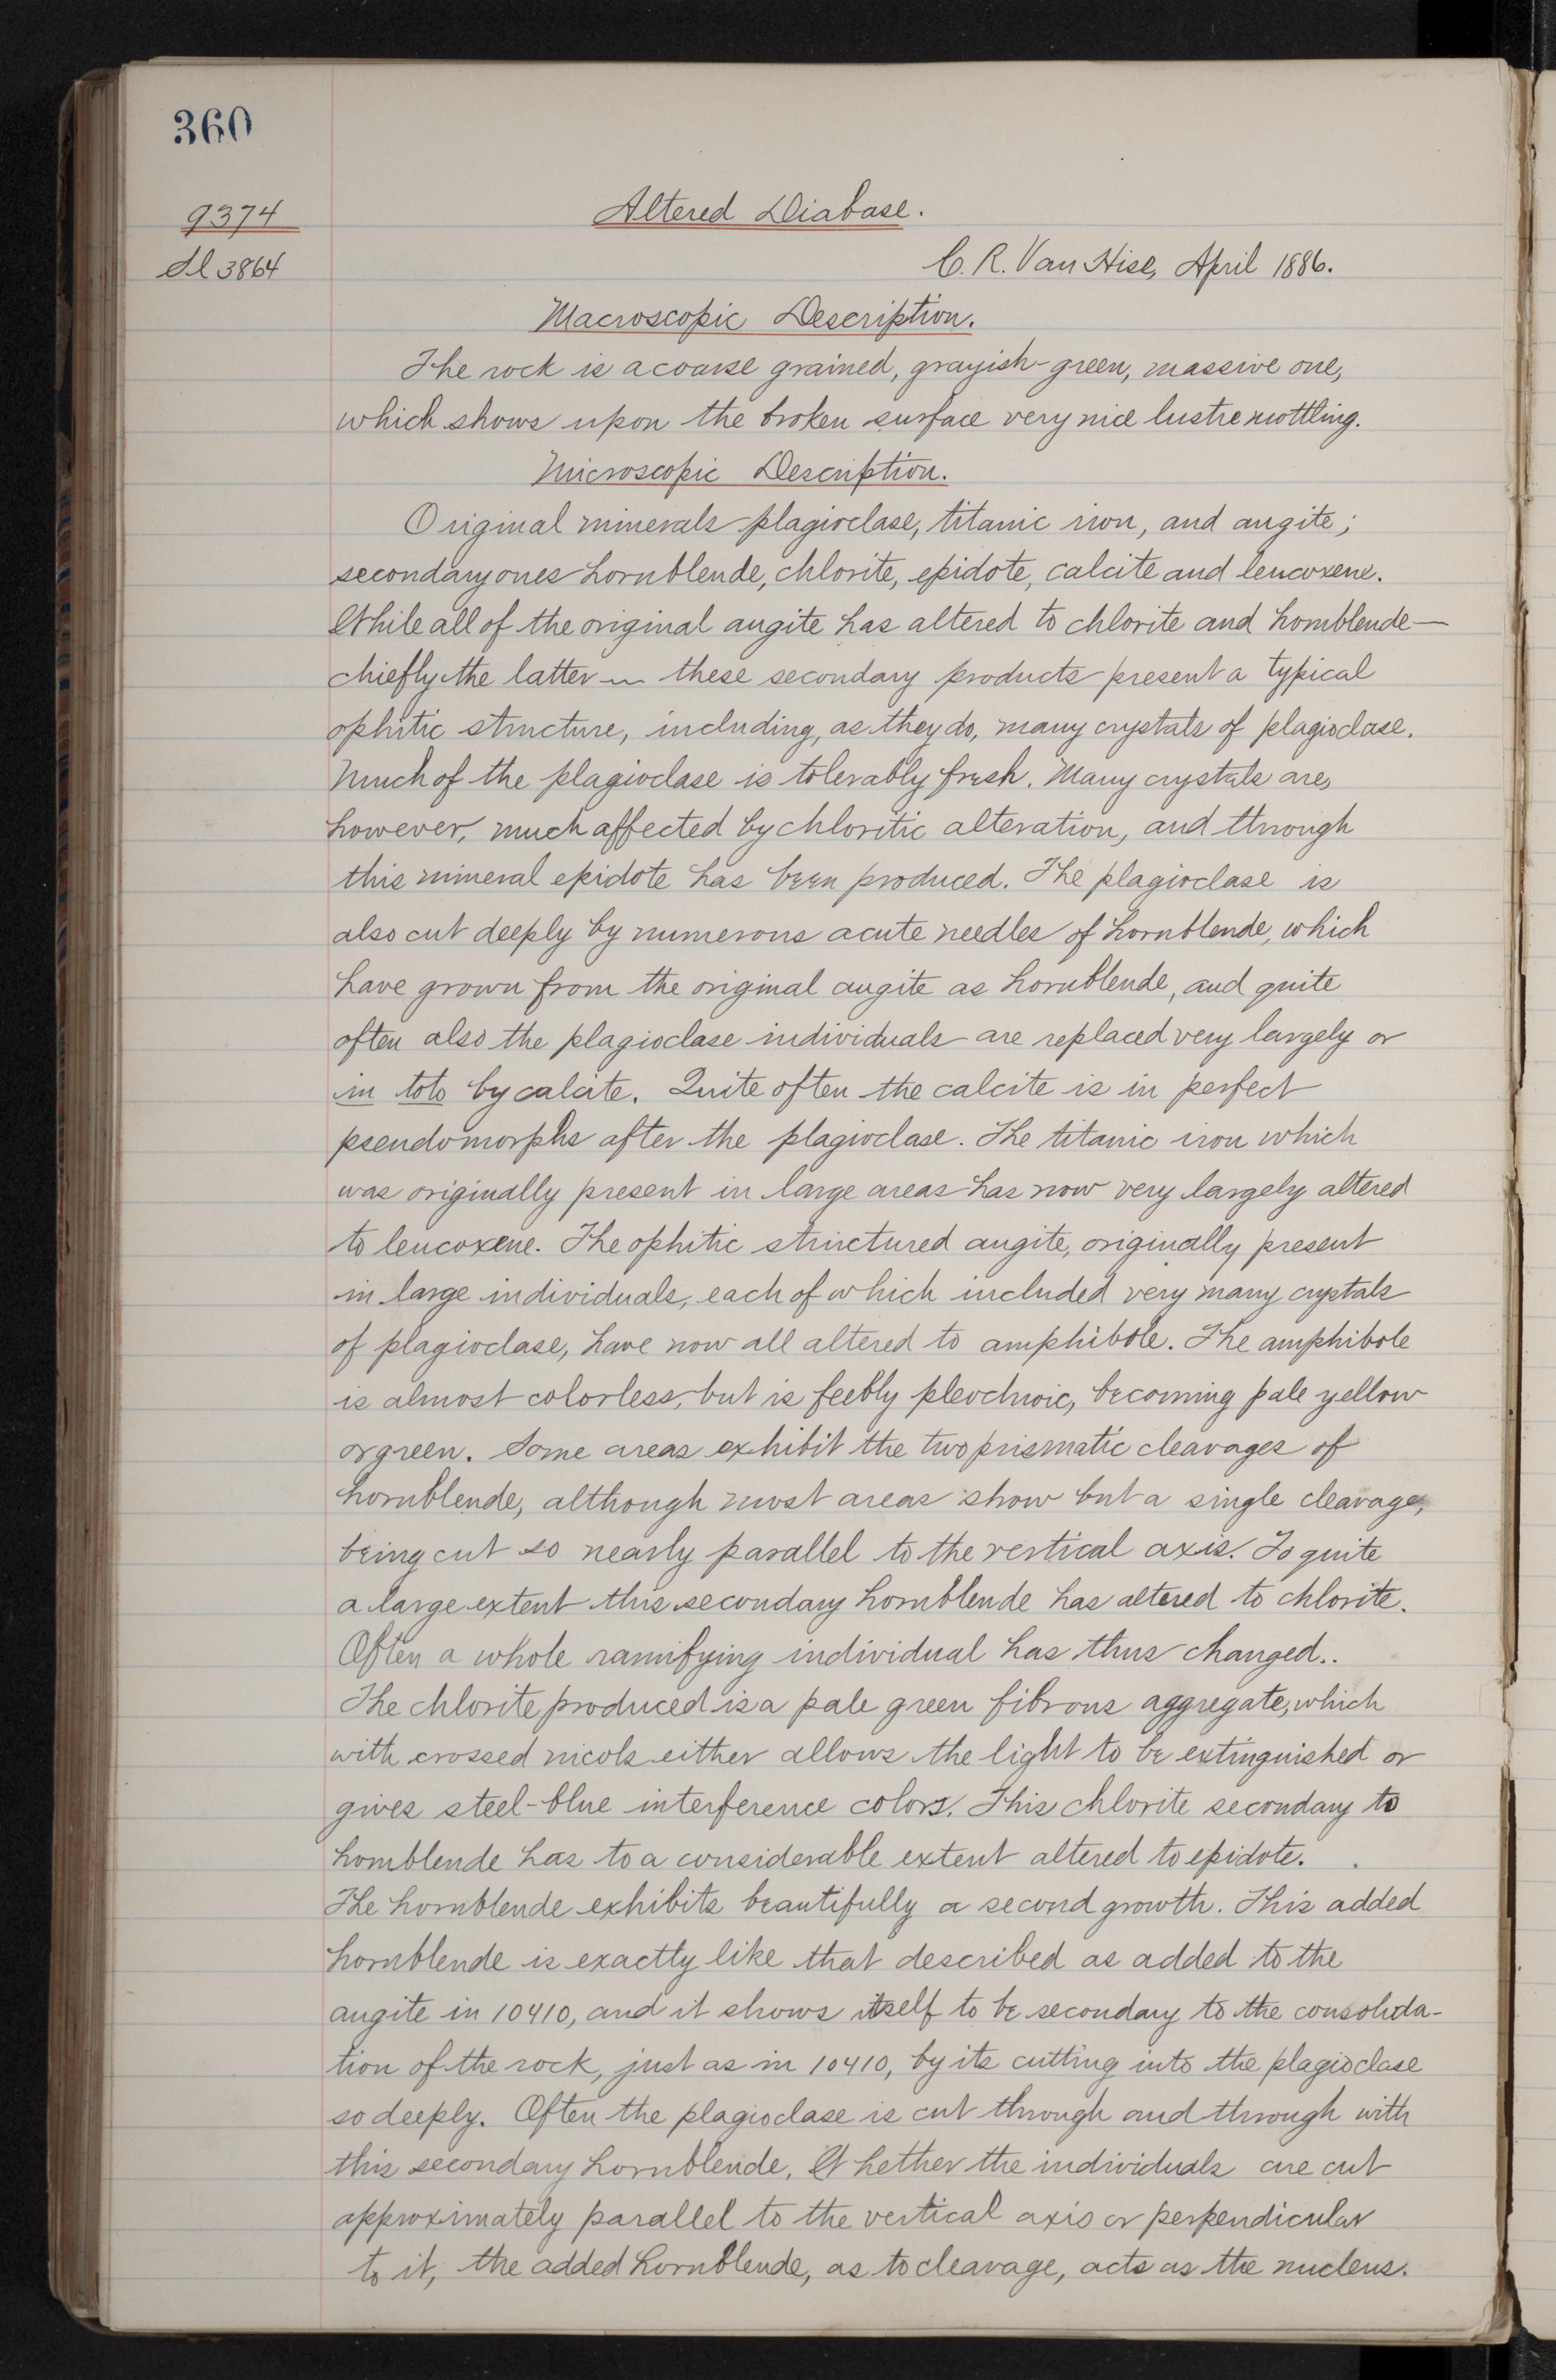 360
9374
Sl 3864
Altered Diabase.
C. R. Van Hise, April 1886.
Macroscopic Description.
The rock is a coarse grained, grayish-green, massive one,
which shows upon the broken surface very nice lustre mottling.
Microscopic Description.
Original minerals plagioclase, titanic iron, and augite;
secondary ones hornblende, chlorite, epidote, calcite and leucoxene.
While all of the original augite has altered to chlorite and hornblende—
chiefly the latter — these secondary products present a typical
ophitic structure, including, as they do, many crystals of plagioclase.
Much of the plagioclase is tolerably fresh. Many crystals are,
however, much affected by chloritic alteration, and through
this mineral epidote has been produced. The plagioclase is
also cut deeply by numerous acute needles of hornblende, which
have grown from the original augite as hornblende, and quite
often also the plagioclase individuals are replaced very largely or
in toto by calcite. Quite often the calcite is in perfect
pseudomorphs after the plagioclase. The titanic iron which
was originally present in large areas has now very largely altered
to leucoxene. The ophitic structured augite, originally present
in large individuals, each of which included very many crystals
of plagioclase, have now all altered to amphibole. The amphibole
is almost colorless, but is feebly pleochroic, becoming pale yellow
or green. Some areas exhibit the two prismatic cleavages of
hornblende, although most areas show but a single cleavage,
being cut so nearly parallel to the vertical axis. To quite
a large extent this secondary hornblende has altered to chlorite.
Often a whole ramifying individual has thus changed..
The chlorite produced is a pale green fibrous aggregate, which
with crossed nicols either allows the light to be extinguished or
gives steel-blue interference colors. This chlorite secondary to
hornblende has to a considerable extent altered to epidote.
The hornblende exhibits beautifully a second growth. This added
hornblende is exactly like that described as added to the
augite in 10410, and it shows itself to be secondary to the consolida-
tion of the rock, just as in 10410, by its cutting into the plagioclase
so deeply. Often the plagioclase is cut through and through with
this secondary hornblende. Whether the individuals are cut
approximately parallel to the vertical axis or perpendicular
to it, the added hornblende, as to cleavage, acts as the nucleus.